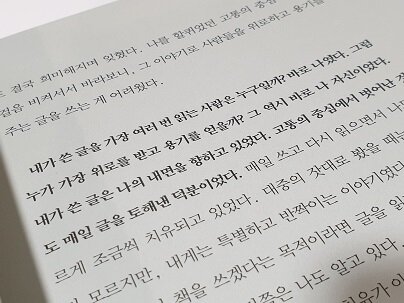 결국 희미해지며 잊혔다. 나를 할퀴었던 고통의 중심
걸음 비켜서서 바라보니, 그 이야기로 사람들을 위로하고 용기를
주는 글을 쓰는 게 어려웠다.
내가 쓴 글을 가장 여러 번 읽는 사람은 누구일까? 바로 나였다. 그럼
누가 가장 위로를 받고 용기를 얻을까? 그 역시 바로 나 자신이었다.
내가 쓴 글은 나의 내면을 향하고 있었다. 고통의 중심에서 벗어난 것
도 매일 글을 토해낸 덕분이었다. 매일 쓰고 다시 읽으면서 나
르게 조금씩 치유되고 있었다. 대중의 잣대로 봤을 때는
모르지만, 내게는 특별하고 반짝이는 이야기였다
책을 쓰겠다는 목적이라면 글을 읽
쯤은 나도 알고 있다.